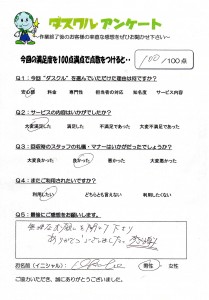 ダスクル アンケート
〜作業終了後のお客様の率直な感想をぜひお聞かせ下さい〜
今回の満足度を100点満点で点数をつけると・・ 100 /100点
Q1：今回“ダスクル”を選んでいただいた理由は何ですか？
安心感 料金 専門性 担当者の対応 知名度 サービス内容
Q2：サービスの内容はいかがでしたか？
大変満足した 満足した 不満足であった 大変不満足であった
Q3：回収時のスタッフの礼儀・マナーはいかがだったでしょうか？
大変良かった 良かった 悪かった 大変悪かった
Q4：またご利用されたいですか？
利用したい どちらとも言えない 利用したくない
Q5：最後にご感想をお願いします。
無理なお願いを聞いて下さり
ありがとうございました。
お名前（イニシャル）： 男性 女性
ご協力いただき、誠にありがとうございました。